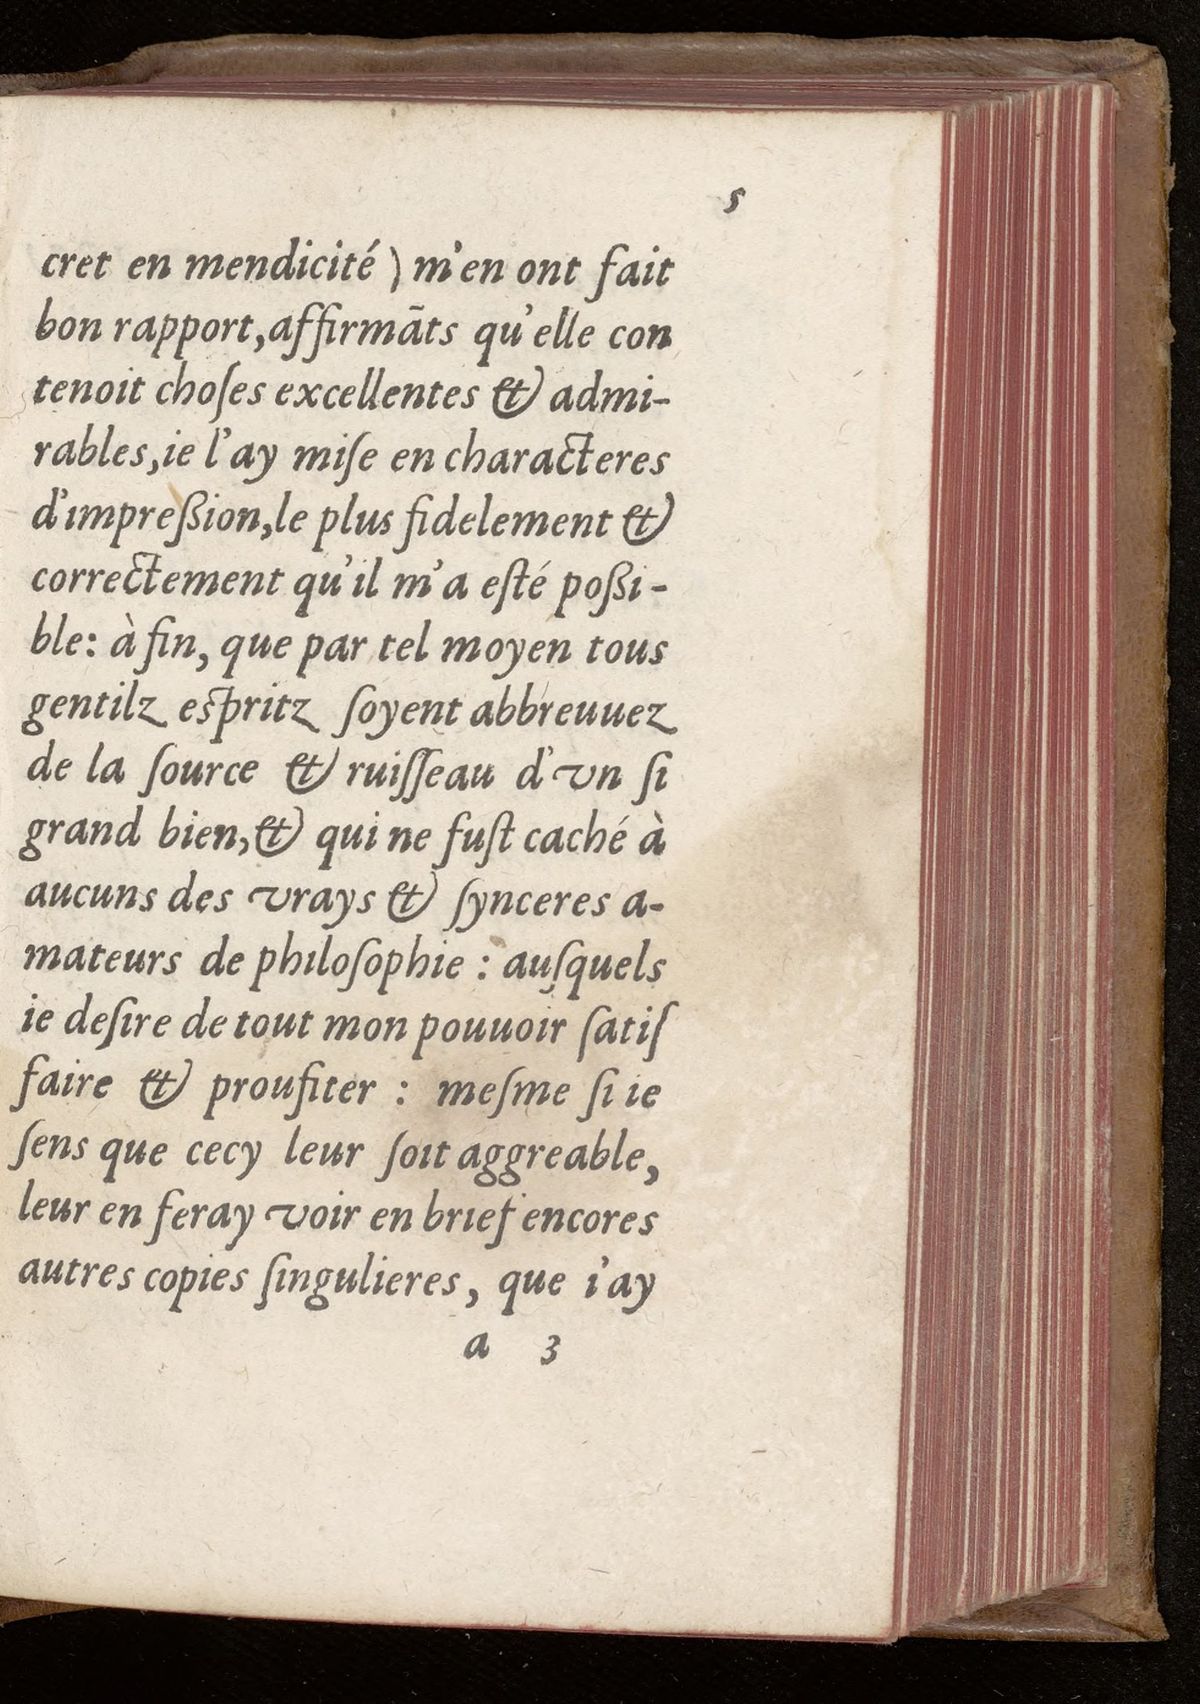 5
cret en mendicité ) m'en ont fait
bon rapport, affirmāts qu'elle con
tenoit choſes excellentes & admi-
rables, ie l'ay miſe en characteres
d'impreßion, le plus fidelement &
correctement qu'il m'a eſté poßi-
ble: à fin, que par tel moyen tous
gentilz eſpritz ſoyent abbreuuez
de la ſource & ruiſſeau d'vn ſi
grand bien, & qui ne fuſt caché à
aucuns des vrays & ſynceres a-
mateurs de philoſophie : auſquels
ie deſire de tout mon pouuoir ſatiſ
faire & proufiter : meſme ſi ie
ſens que cecy leur ſoit aggreable,
leur en feray voir en brief encores
autres copies ſingulieres, que i'ay
a 3